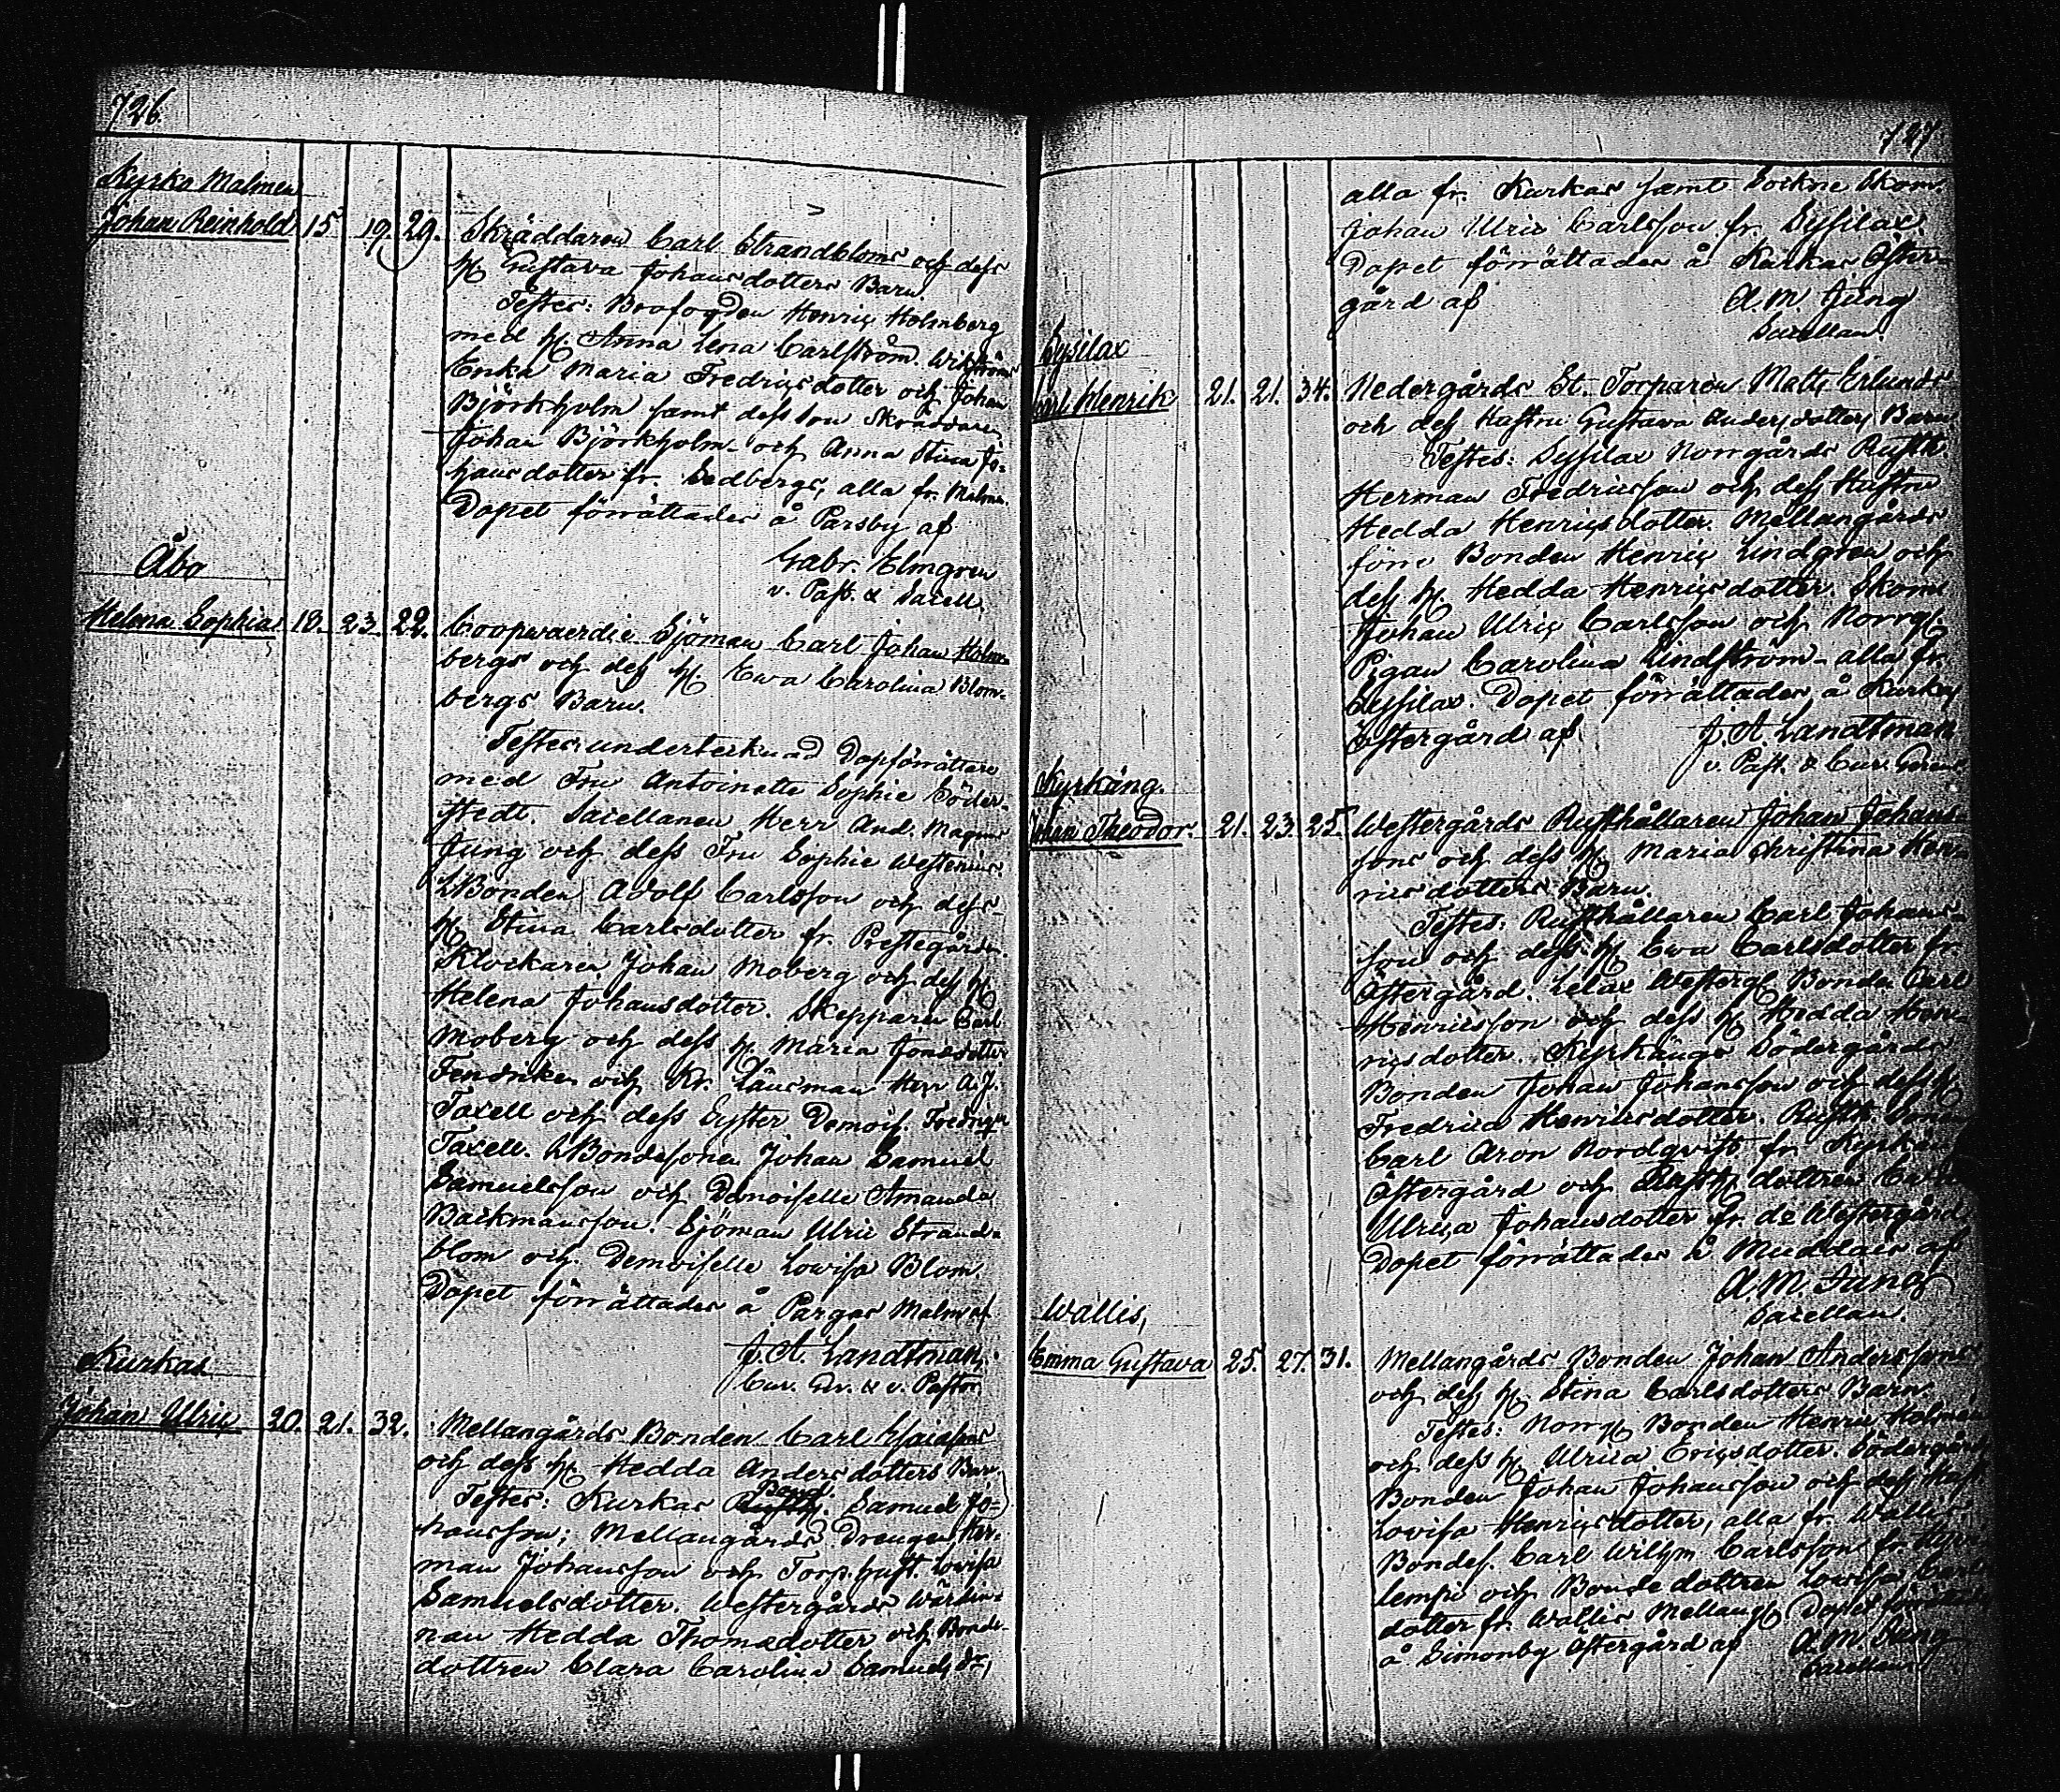 726.
Kyrko Malmen
Johan Reinhold 15 19. 29. Skräddaren Carl Strandbloms och dess
H Gustava Johansdotters Barn.
Testes: Brofogden Henric Holmberg
med H. Anna Lena Carlström. Wikströms
Enka Maria Fredricsdotter och Johan
Björkholm samt dess son Skräddaren
Johan Björkholm och Anna Stina Jo-
hansdotter fr. Sedbergs, alla fr. Malmen.
Dopet förrättades å Parsby af
Gabr. Elmgren
v. Past. & Sacell.
Åbo
Helena Sophia 18. 23. 22. Coopvaerdie Sjöman Carl Johan Holm-
bergs och dess H. Ewa Carolina Blom-
bergs Barn.
Testes: undertecknad Dopförrättare
med Fru Antoinette Sophie Söder-
stedt. Sacellanen Herr And. Magnus
Jung och dess Fru Sophie Westenius.
LBonden Adolf Carlsson och dess
H Stina Carlsdotter fr. Prestegården.
Klockaren Johan Moberg och dess H
Helena Johansdotter. Skepparen Carl
Moberg och dess H. Maria Jonasdotter
Fendriken och Kr. Länsman Herr A.J.
Taxell och dess Syster Demois. Fredriqe
Taxell. LBondesonen Johan Samuel
Samuelsson och Demoiselle Amanda
Backmansson. Sjöman Ulric Strand-
blom och Demoiselle Lowisa Blom.
Dopet förrättades å Pargas Malm af
J. A. Landtman,
Cur. Gr. & v. Pastor
Kurkas
Johan Ulric 20. 21. 32. Mellangårds Bonden Carl Esaiasons
och dess H. Hedda Andersdotters Barn
Testes: Kurkas Bond. Samuel Jo-
hansson; Mellangårds Drengen Her-
man Johansson och Torp. hust. Lovisa
Samuelsdotter. Westergårds Wärdin-
nan Hedda Thomasdotter och Bonde-
dottren Clara Carolina Samuelsdr,
727
alla fr. Kurkas samt Sockne Skom.
Johan Ulric Carlsson fr. Sysilax.
Dopet förrättades å Kurkas Öster-
gård af A. M. Jung
Sacellan.
Sysilax
Carl Henrik 21. 21. 34. Nedergårds St. Torparen Matts Erlunds
och dess Hustru Gustava Andersdotters Barn
Testes: Sysilax Norrgårds Rusth.
Herman Fredricsson och dess Hustru
Hedda Henricsdotter. Mellangårds
förre Bonden Henric Lindgren och
dess H. Hedda Henricsdotter. Skom.
Johan Ulric Carlsson och Norrg.
Pigan Carolina Lindström - alla fr.
Sysilax. Dopet förrättades å Kurkas
Östergård af J. A. Landtman
v. Past. & Cur. Gr.
Kyrkäng.
Johan Theodor. 21. 23. 25. Westergårds Rusthållaren Johan Johans-
sons och dess H Maria Christina Hen-
ricsdotters Barn.
Testes: Rusthållaren Carl Johans-
son och dess H Ewa Carlsdotter fr.
Östergård. Lelax Westerg Bonden Carl
Henricsson och dess H Hedda Hen-
ricsdotter. Kyrkänge Södergårds
Bonden Johan Johansson och dess H
Fredrica Henricsdotter. Rusth. Son
Carl Aron Nordqvist fr. Kyrkäng
Östergård och Rusth dottren
Ulrica Johansdotter fr. do Westergård
Dopet förrättades å Muddais af
A. M. Jung
Sacellan.
Wallis,
Emma Gustava 25. 27. 31. Mellangårds Bonden Johan Anderssons
och dess H. Stina Carlsdotters Barn.
Testes: Norrg Bonden Henric Holmén
och dess H. Ulrica Ericsdotter. Södergårds
Bonden Johan Johansson och dess Hust
Lovisa Henricsdotter, alla fr. Wallis.
Bondes. Carl Wilhm Carlsson fr.
lempi och Bondedottren Lovisa Carls-
dotter fr. Wallis Mellang Dopet förrättades
å Simonby Östergård af A. M. Jung
Sacellan.